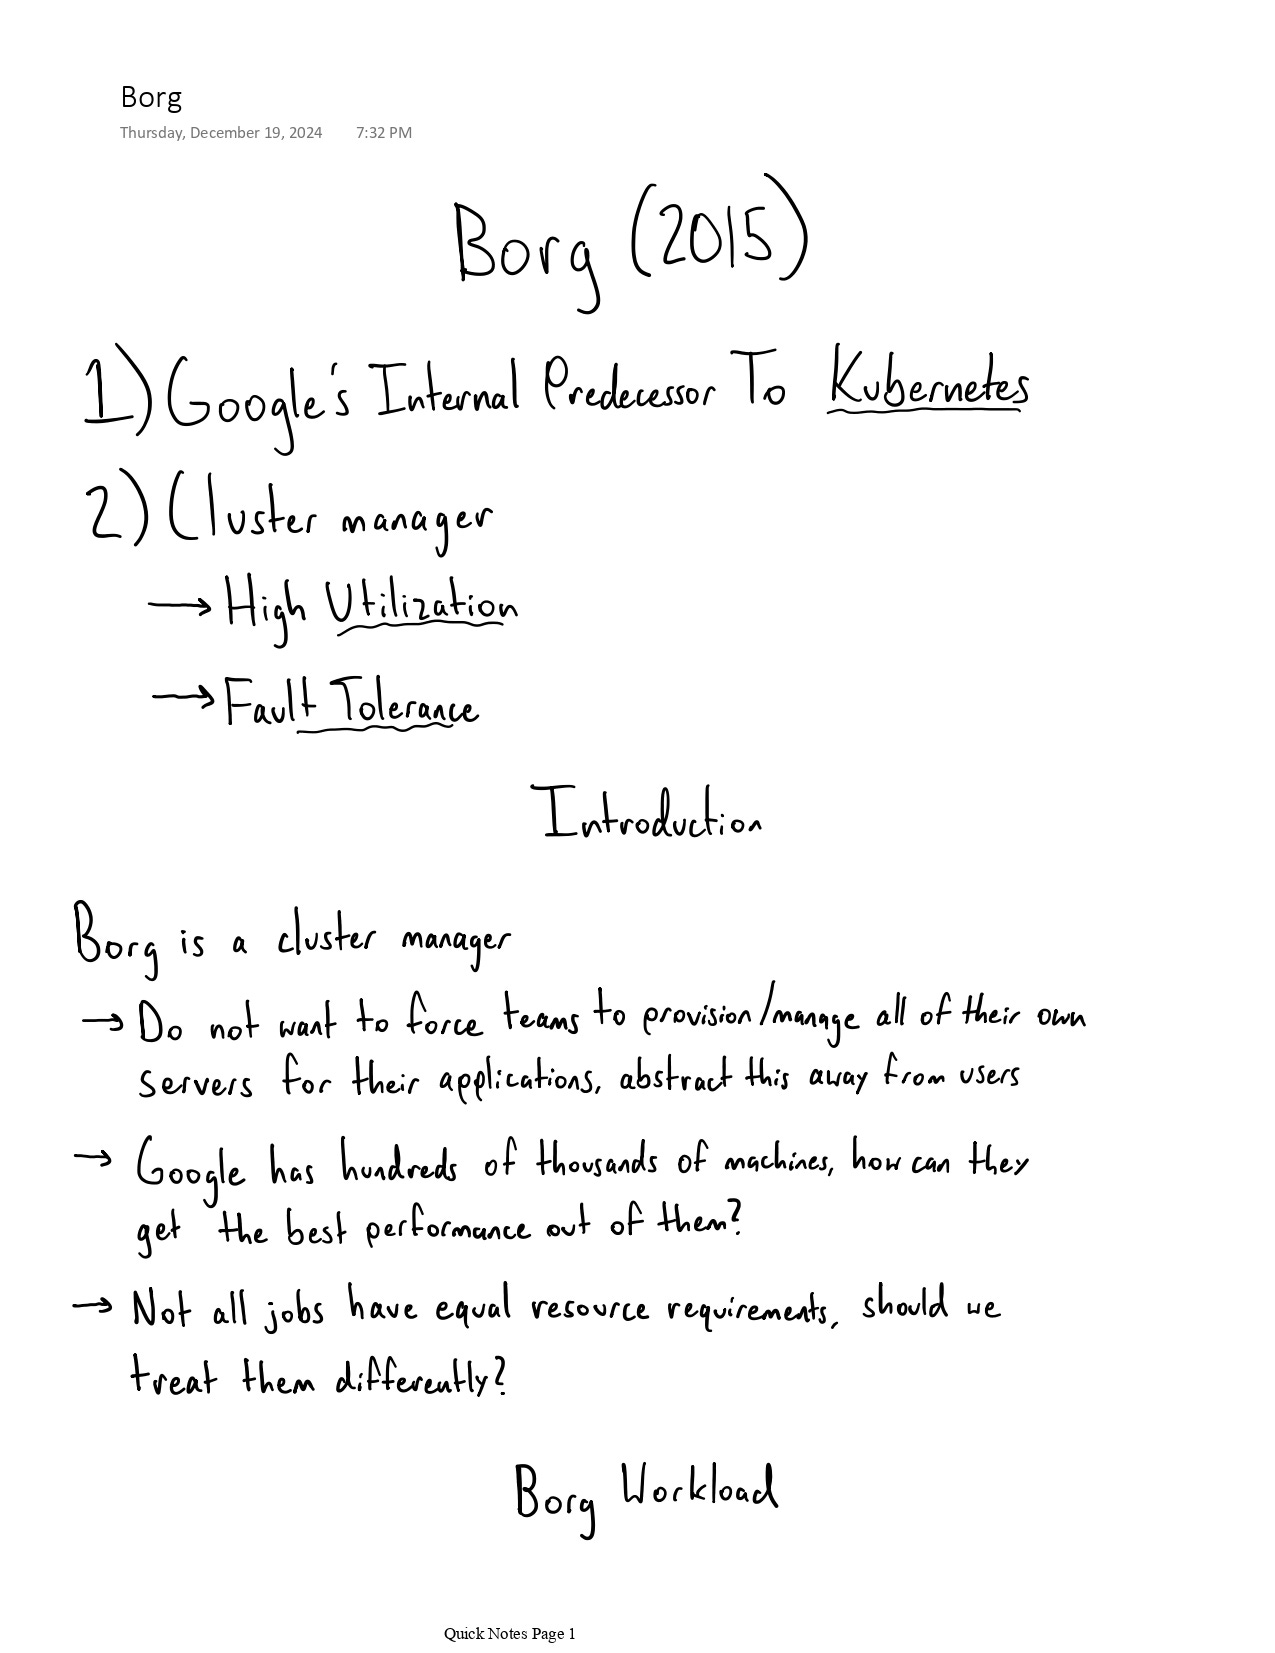 Borg
Thursday, December 19, 2024 7:32 PM
Borg (2015)
1) Google's Internal Predecessor To Kubernetes
2) Cluster manager
→ High Utilization
→ Fault Tolerance
Introduction
Borg is a cluster manager
→ Do not want to force teams to provision/manage all of their own
servers for their applications, abstract this away from users
→ Google has hundreds of thousands of machines, how can they
get the best performance out of them?
→ Not all jobs have equal resource requirements, should we
treat them differently?
Borg Workload
Quick Notes Page 1